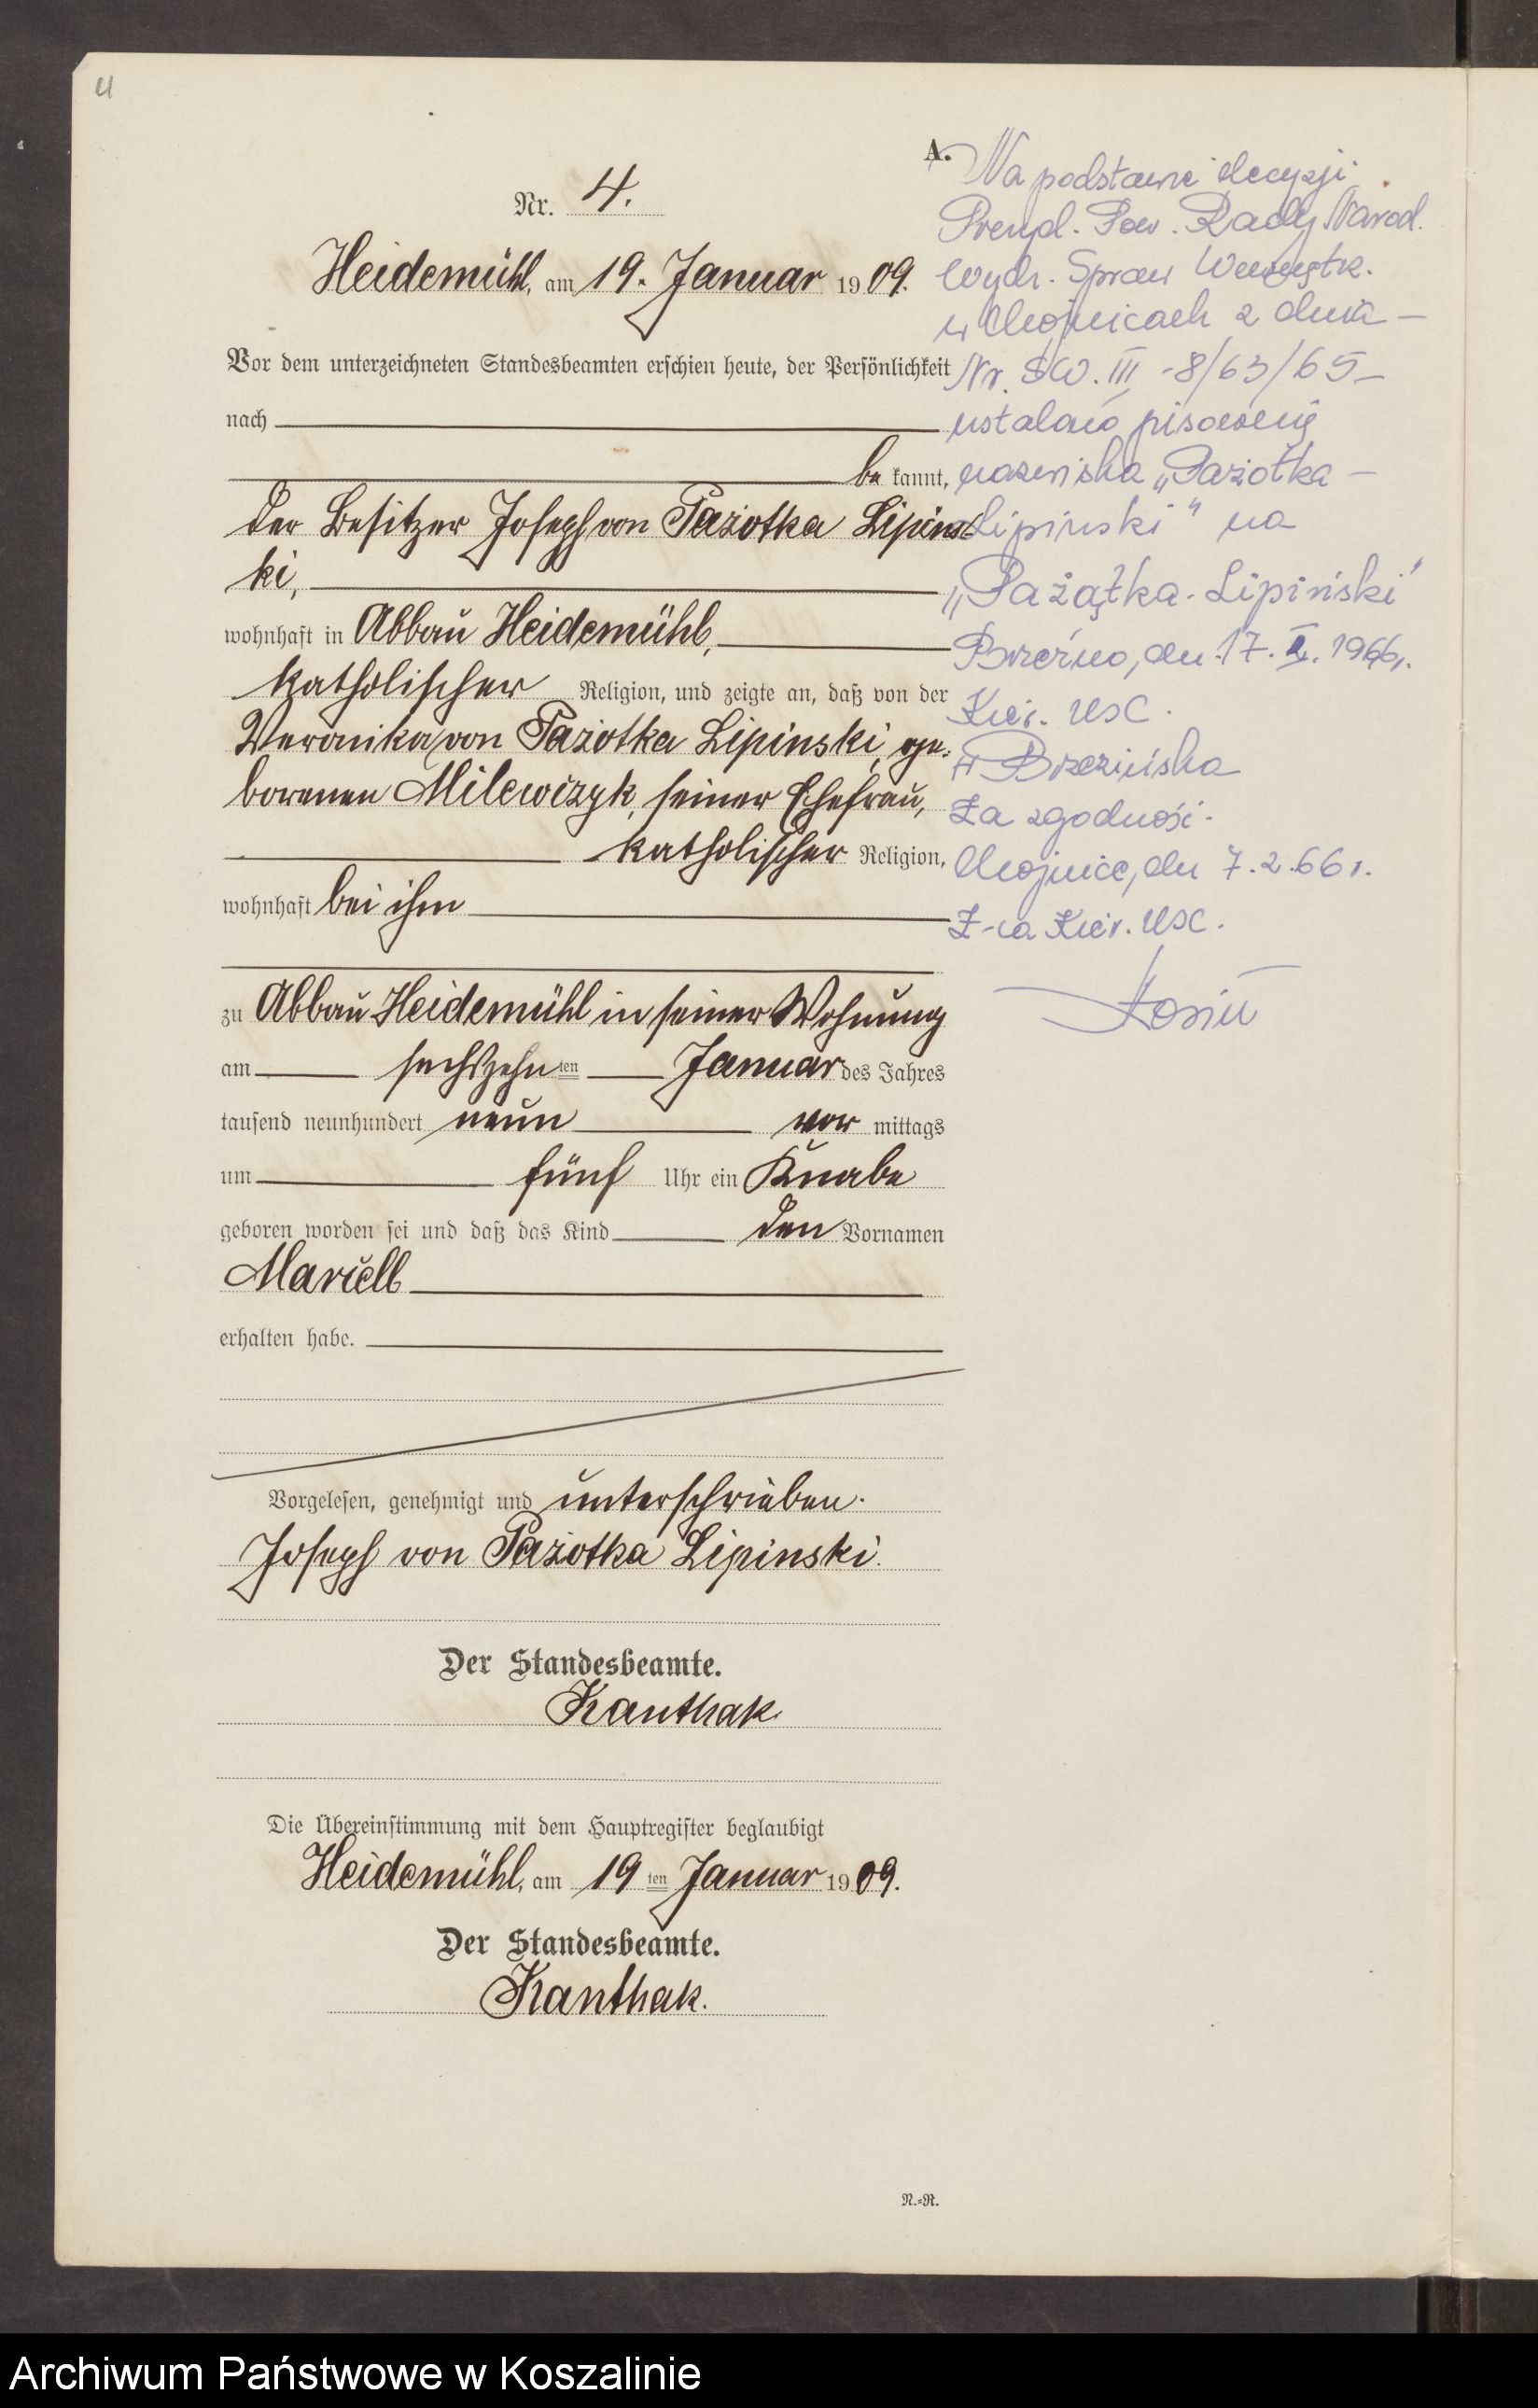 4
A.
Nr. 4.
Heidemühl, am 19. Januar 1909.
Vor dem unterzeichneten Standesbeamten erschien heute, der Persönlichkeit
nach
be kannt,
der Besitzer Joseph von Pażotka Lipins-
ki,
wohnhaft in Abbau Heidemühl,
katholischer Religion, und zeigte an, daß von der
Veronika von Pażotka Lipinski, ge-
borenen Milewczyk, seiner Ehefrau,
katholischer Religion,
wohnhaft bei ihm
zu Abbau Heidemühl in seiner Wohnung
am sechszehn ten Januar des Jahres
tausend neunhundert neun vor mittags
um fünf Uhr ein Knabe
geboren worden sei und daß das Kind den Vornamen
Mariell
erhalten habe.
Vorgelesen, genehmigt und unterschrieben.
Joseph von Pażotka Lipinski.
Der Standesbeamte.
Kanthak
Die Übereinstimmung mit dem Hauptregister beglaubigt
Heidemühl, am 19 ten Januar 1909.
Der Standesbeamte.
Kanthak.
N.-R.
Na podstawie decyzji
Prezyd. Pow. Rady Narod.
Wydz. Spraw Wewnętrz.
w Chojnicach z dnia –
Nr. SW. III -8/63/65 –
ustalono pisownię
nazwiska „Pażotka –
Lipinski" na
„Pażątka-Lipiński"
Brzeźno, dn. 17. I. 1966 r.
Kier. USC.
Brzezińska
Za zgodność.
Chojnice, dn 7.2.66 r.
Z-ca Kier. USC.
Archiwum Państwowe w Koszalinie